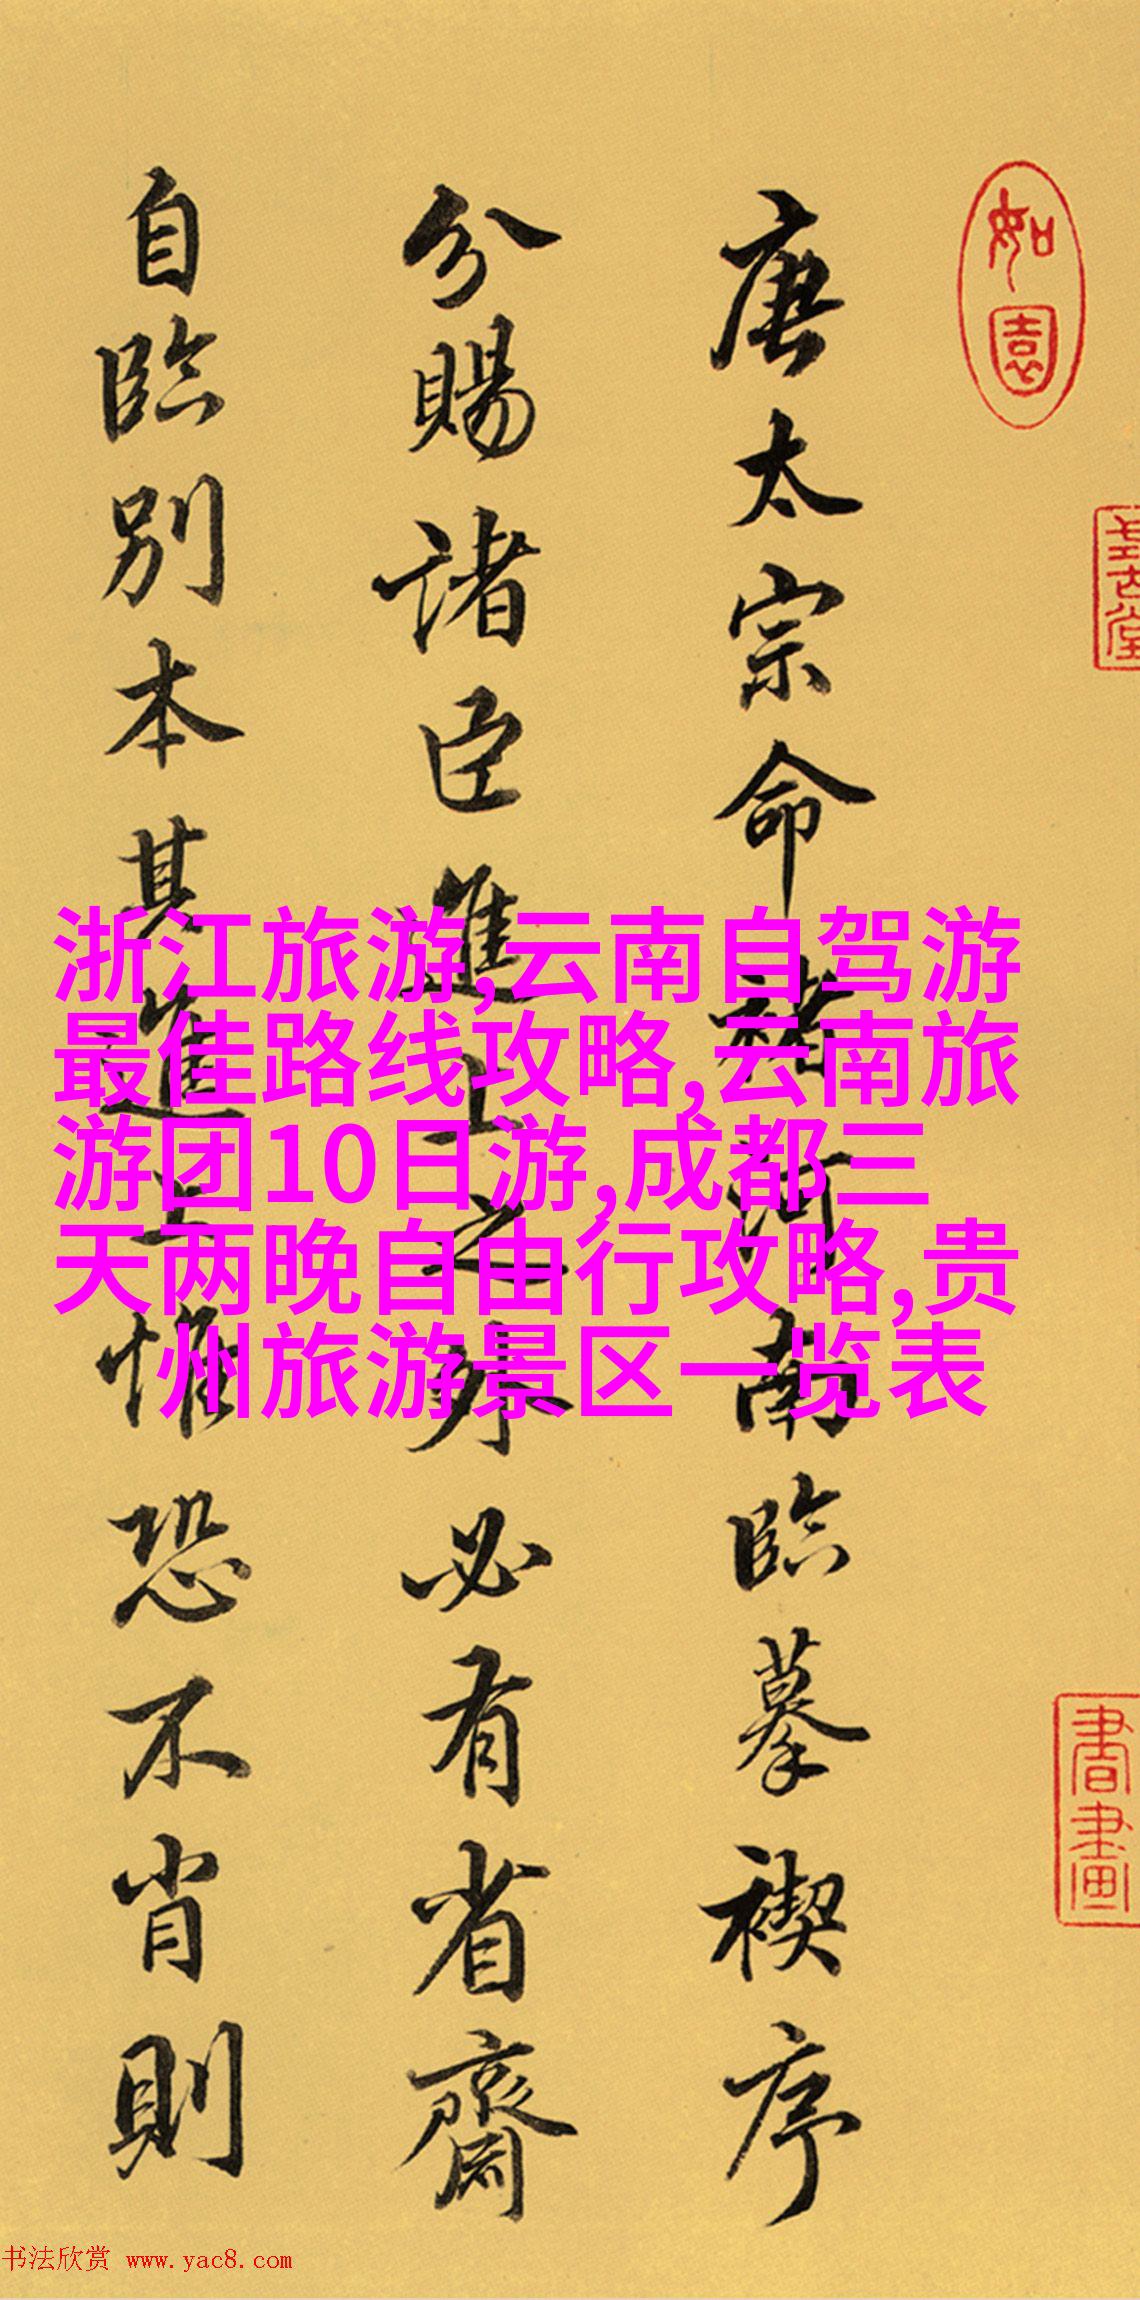 如園
古堂
書畫
唐太宗命褚河南臨摹禊序
分賜諸臣進上之外必有省齋
自臨別本其進上惟恐不肖則
浙江旅游,云南自驾游
最佳路线攻略,云南旅
游团10日游,成都三
天两晚自由行攻略,贵
州旅游景区一览表
书法欣赏 www.yac8.com